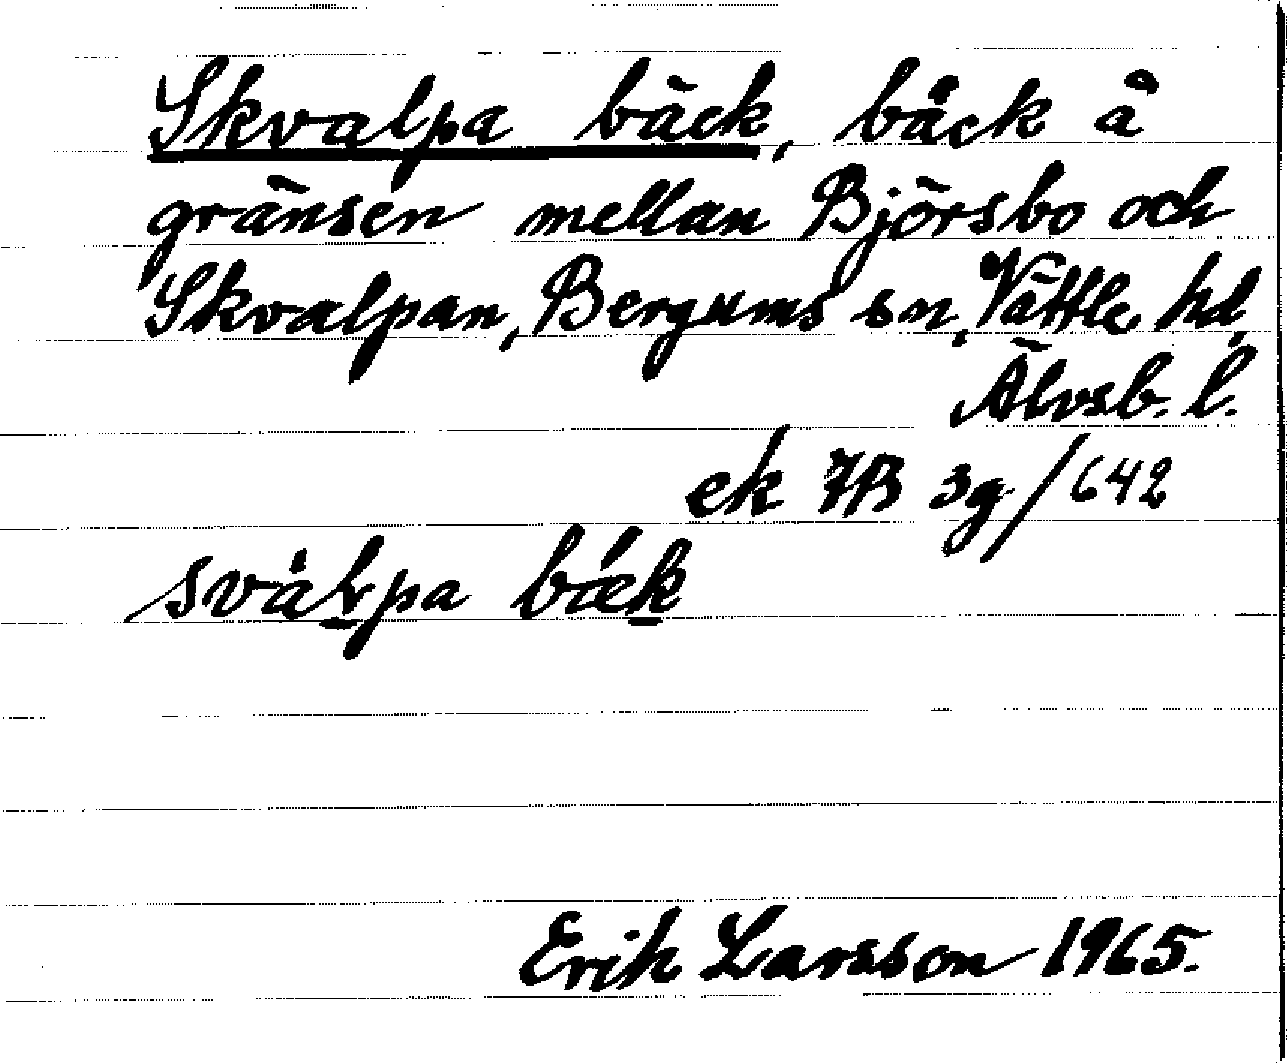 Skvalpa bäck, bäck å
gränsen mellan Björsbo och
Skvalpan, Bergums sn, Vättle hd,
Älvsb. l.
ek 7B 3g/642
svàlpa bæk
Erik Larsson 1965.